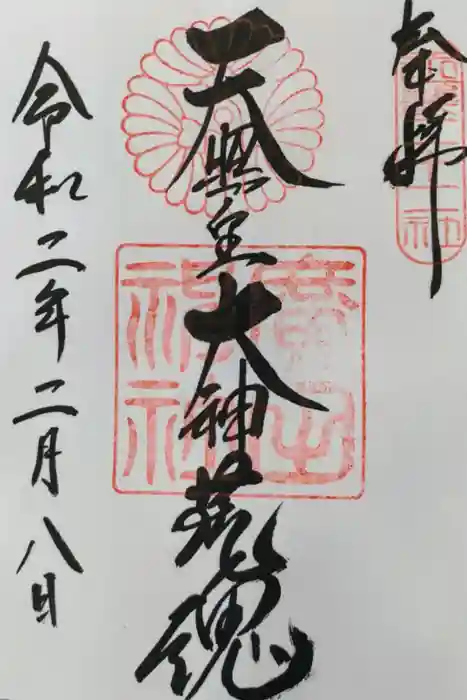 奉拝
天照皇大神荒魂
廣田
神社
令和二年二月八日